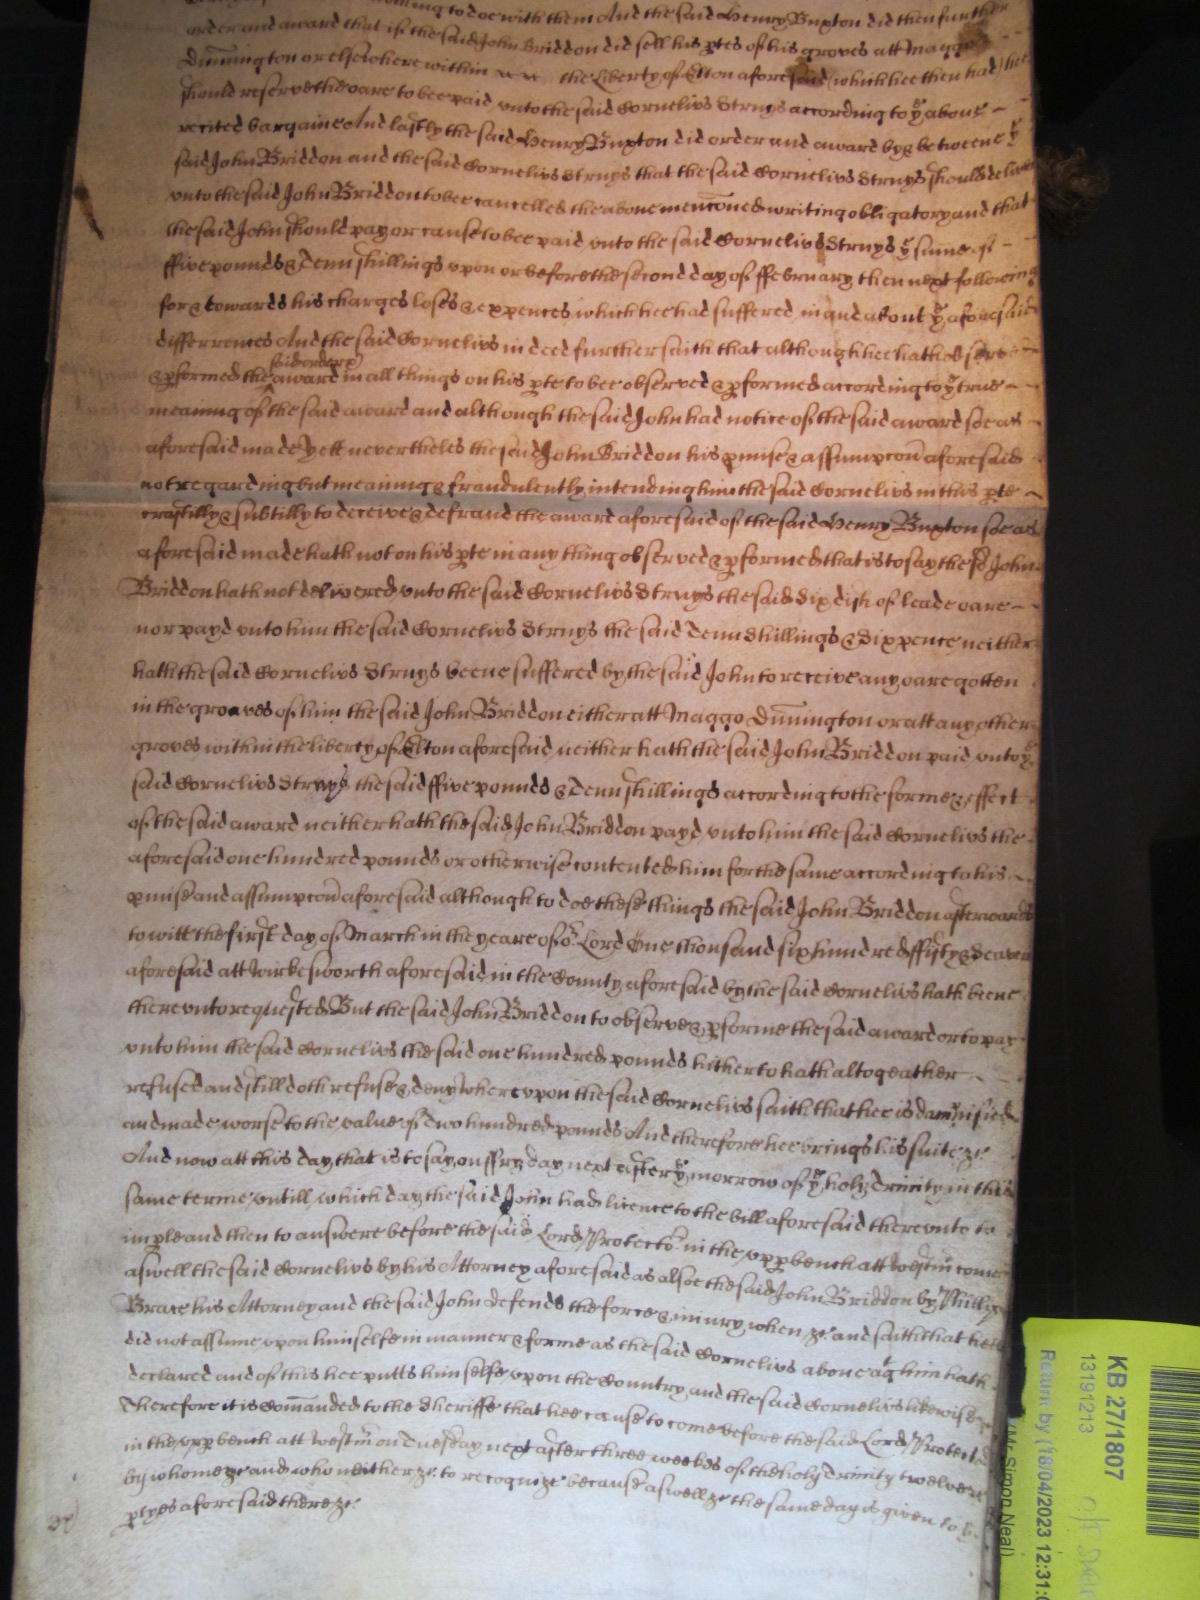 nothing to doe with them And the said Henry Buxton did then further
order and award that if the said John Briddon did sell his ptes of his groves att Maggo
Dunnington or elsewhere within the Liberty of Elton aforesaid (which hee then had) hee
should reserve the oare to bee paid unto the said Cornelius Struys according to ye above
recited bargaine And lastly the said Henry Buxton did order and award by & betweene ye
said John Briddon and the said Cornelius Struys that the said Cornelius Struys should deliver
unto the said John Briddon to bee cancelled the above mencōned writing obligatory and that
the said John should pay or cause to bee paid unto the said Cornelius Struys ye sume of
ffive pounds & Tenn shillings upon or before the second day of ffebruary then next following
for & towards his charges loses & expences which hee had suffered in and about ye aforesaid
differences And the said Cornelius in deed further saith that although hee hath observed
& pformed the said order & award in all things on his pte to bee observed & pformed according to ye true
meaning of the said award and although the said John had notice of the said award soe as
aforesaid made Yett nevertheles the said John Briddon his pmise & assumpcon aforesaid
not regarding but meaning & fraudulently intending him the said Cornelius in this pte
craftilly & subtilly to deceive & defraud the award aforesaid of the said Henry Buxton soe as
aforesaid made hath not on his pte in any thing observed & pformed that is to say the sd John
Briddon hath not delivered unto the said Cornelius Struys the said six dish of leade oare
nor payd unto him the said Cornelius Struys the said Tenn shillings & sixpence neither
hath the said Cornelius Struys beene suffered by the said John to receive any oare gotten
in the groaves of him the said John Briddon either att Maggo Dunnington or att any other
groves within the liberty of Elton aforesaid neither hath the said John Briddon paid unto ye
said Cornelius Struys the said ffive pounds & Tenn shillings according to the forme & effect
of the said award neither hath the said John Briddon payd unto him the said Cornelius the
aforesaid one hundred pounds or otherwise contented him for the same according to his
pmise and assumpcon aforesaid although to doe these things the said John Briddon afterwards
to witt the first day of March in the yeare of or Lord One thousand six hundred ffifty & seaven
aforesaid att Wirkesworth aforesaid in the County aforesaid by the said Cornelius hath beene
thereunto requested But the said John Briddon to observe & pforme the said award or to pay
unto him the said Cornelius the said one hundred pounds hitherto hath altogeather
refused and still doth refuse & deny whereupon the said Cornelius saith that hee is damnified
and made worse to the value of two hundred pounds And therefore hee brings his suite &c
And now att this day that is to say on ffryday next after ye morrow of ye holy Trinity in this
same terme untill which day the said John had licence to the bill aforesaid thereunto to
imple and then to answere before the said Lord Protector in the upp bench att Westm come
aswell the said Cornelius by his Attorney aforesaid as alsoe the said John Briddon by Phillip
Brace his Attorney and the said John defends the force & iniury when &c and saith that hee
did not assume upon himselfe in manner & forme as the said Cornelius above agt him hath
declared and of this hee putts himselfe upon the Country and the said Cornelius likewise &c
Therefore it is comanded to the Sheriffe that hee cause to come before the said Lord Protector
in the upp bench att Westm on Tuesday next after three weekes of the holy Trinity twelve &c
by whome &c and who neither &c to recognize because aswell &c the same day is given to ye
ptyes aforesaid there &c
KB 27/1807
13191213
Return by (18/04/2023 12:31:0
(Mr Simon Neal)